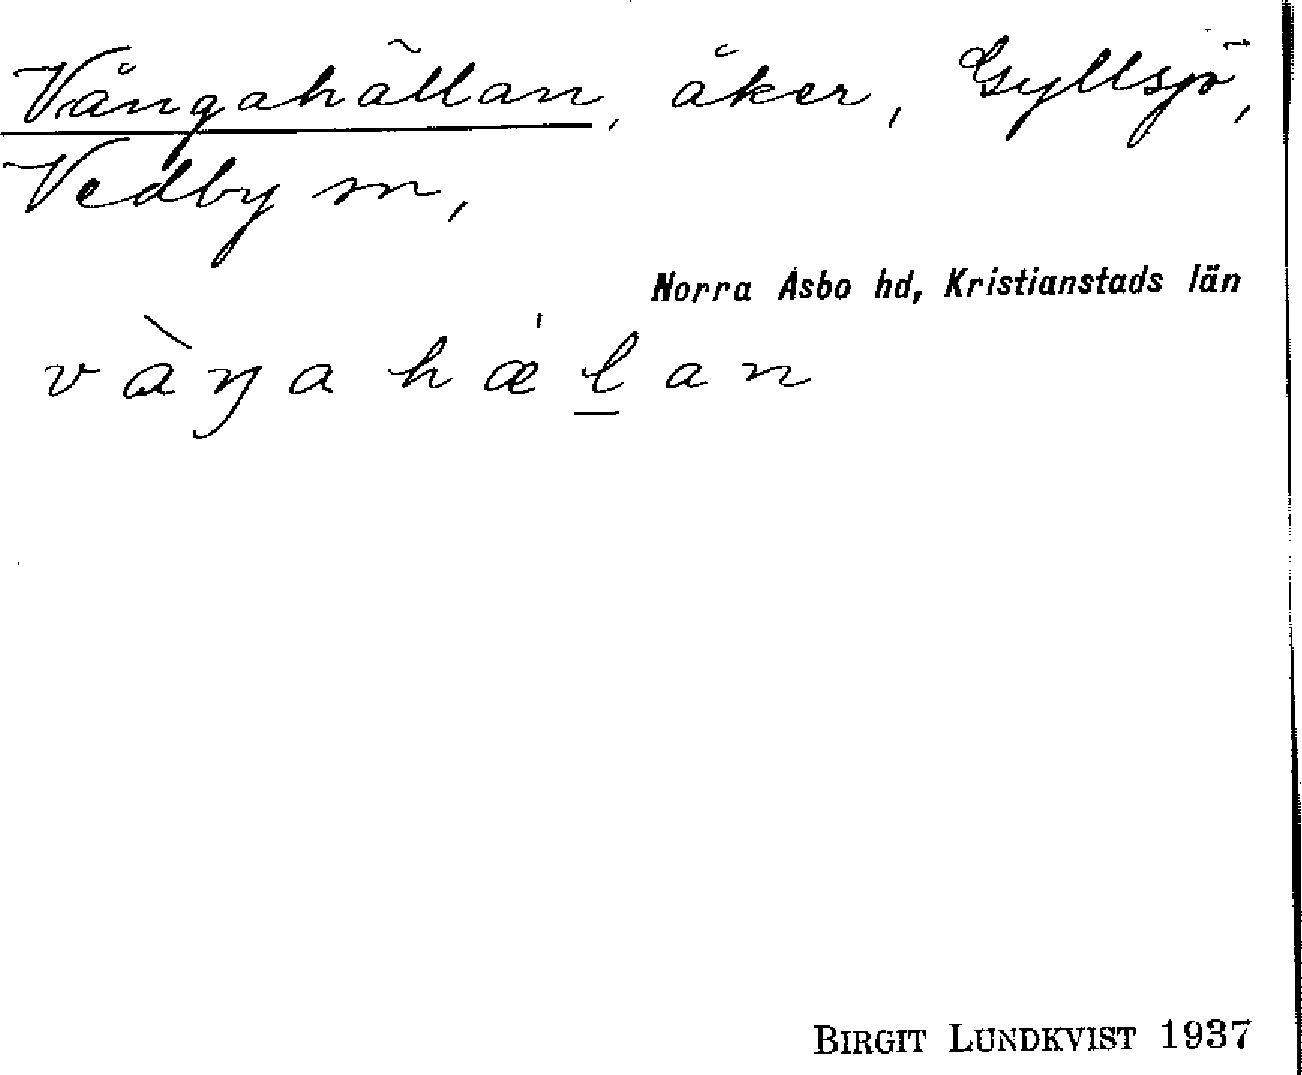 Vångahällan, åker, Gyllsjö,
Vedby sn,
Norra Åsbo hd, Kristianstads län
vàŋahǽl̲an
BIRGIT LUNDKVIST 1937